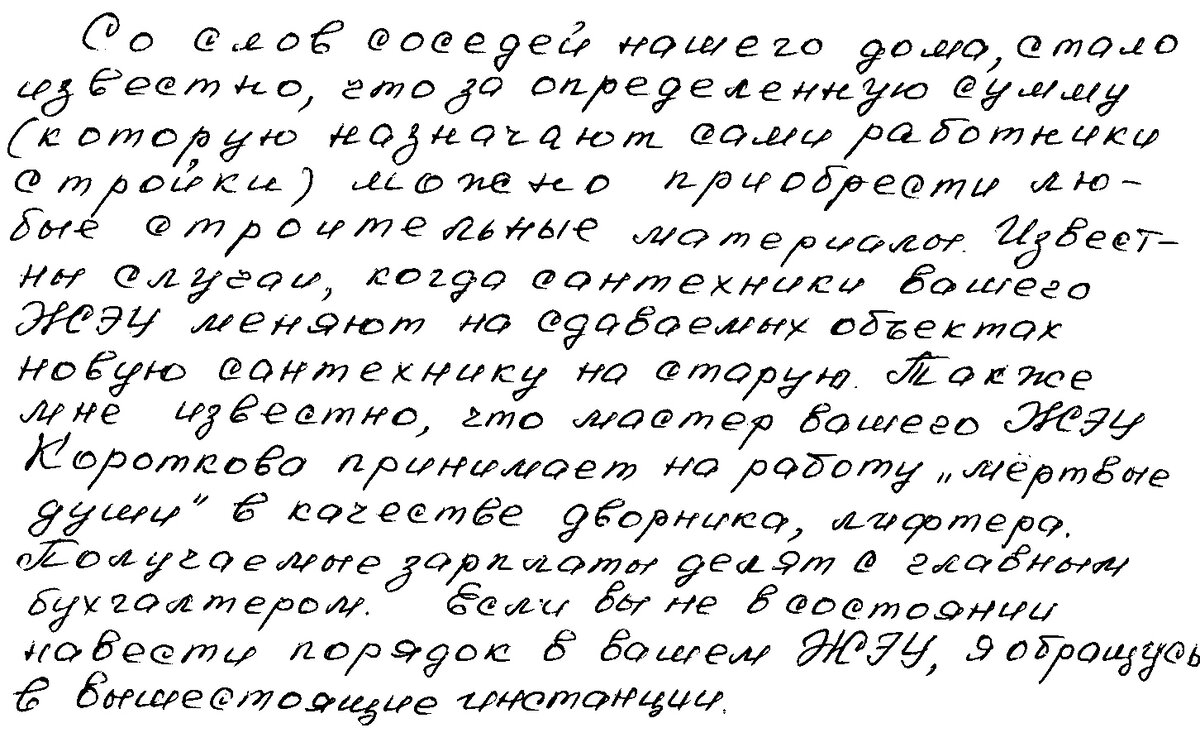 Со слов соседей нашего дома, стало
известно, что за определенную сумму
(которую назначают сами работники
стройки) можно приобрести лю-
бые строительные материалы. Извест-
ны случаи, когда сантехники вашего
ЖСЭУ меняют на сдаваемых объектах
новую сантехнику на старую. Также
мне известно, что мастер вашего ЖСЭУ
Короткова принимает на работу „мёртвые
души" в качестве дворника, лифтера.
Получаемые зарплаты делят с главным
бухгалтером. Если вы не в состоянии
навести порядок в вашем ЖСЭУ, я обращусь
в вышестоящие инстанции.